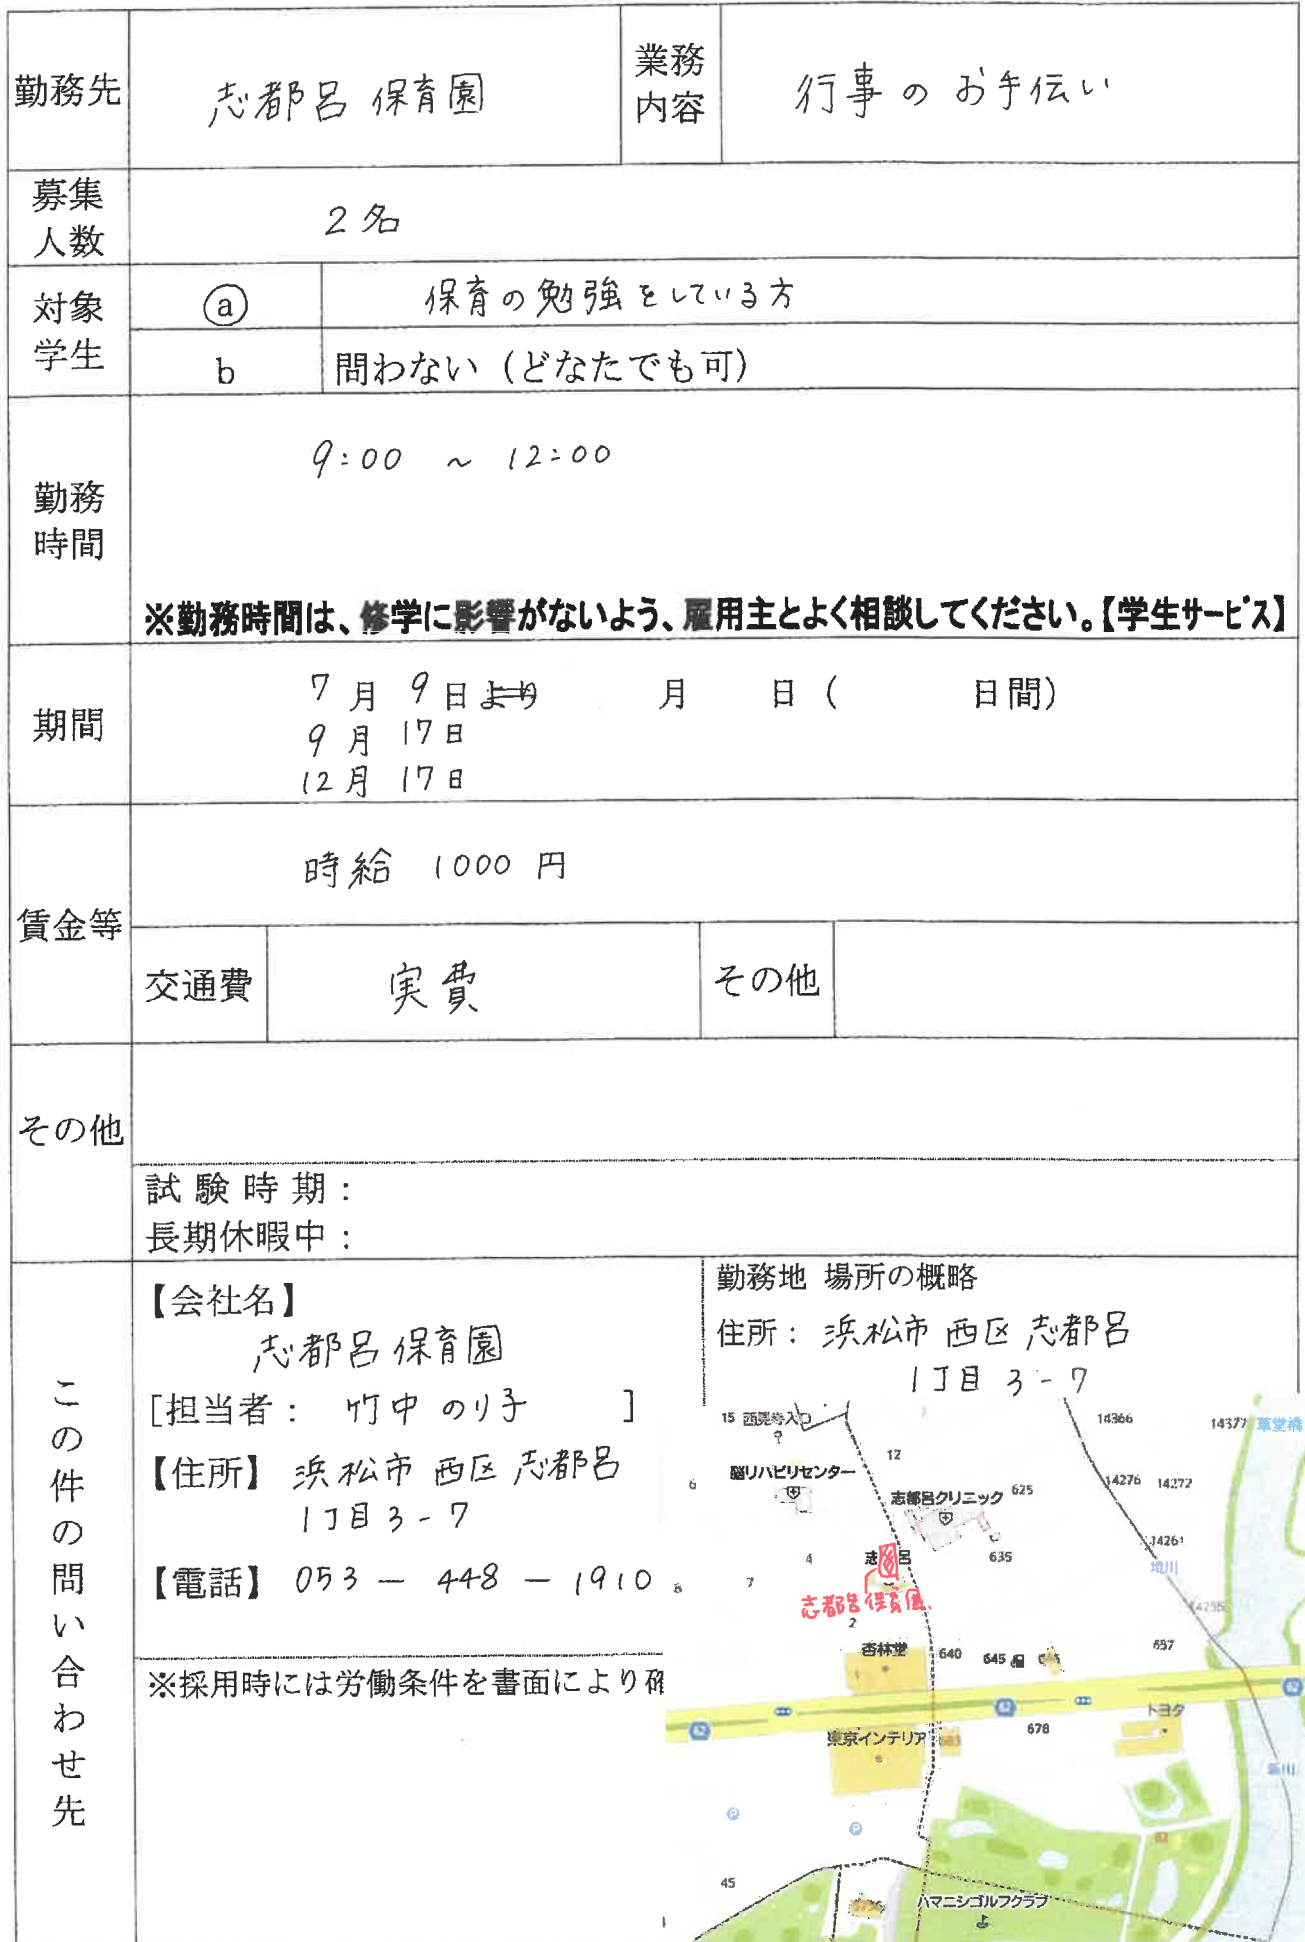 勤務先
志都呂 保育園
業務
内容
行事の お手伝い
募集
人数
2名
対象
学生
a
保育の勉強をしている方
b
問わない（どなたでも可）
勤務
時間
9:00 ～ 12:00
※勤務時間は、修学に影響がないよう、雇用主とよく相談してください。【学生サービス】
期間
7月 9日より 月 日（ 日間）
9月 17日
12月 17日
賃金等
時給 1000 円
交通費
実費
その他
その他
試験時期：
長期休暇中：
この件の問い合わせ先
【会社名】
志都呂保育園
［担当者： 竹中 のり子 ］
【住所】 浜松市 西区 志都呂
1丁目3-7
【電話】 053 － 448 － 1910
※採用時には労働条件を書面により確
勤務地 場所の概略
住所： 浜松市 西区 志都呂
1丁目 3-7
15
12
14366
14377
草堂橋
脳リハビリセンター
6
志都呂クリニック
625
14276
14272
14261
境川
4
635
7
8
志都呂保育園
2
14255
杏林堂
1
640
645
657
62
62
62
トヨタ
東京インテリア
678
P
P
45
ハマニシゴルフクラブ